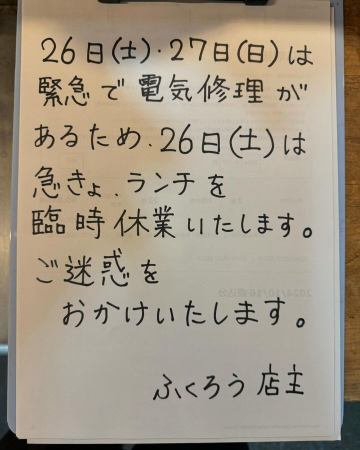 26日(土)・27日(日)は
緊急で電気修理が
あるため、26日(土)は
急きょ、ランチを
臨時休業いたします。
ご迷惑を
おかけいたします。
ふくろう 店主